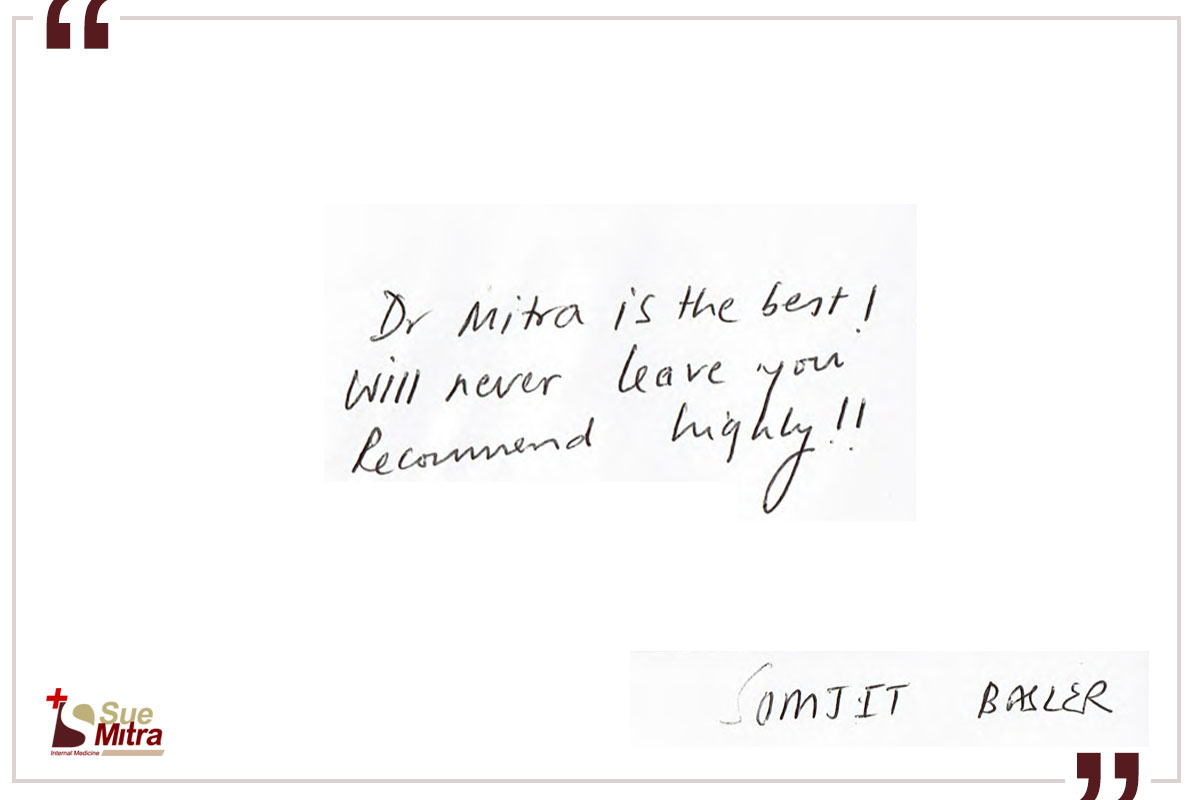 “
Dr Mitra is the best!
Will never leave you
Recommend highly!!
SOMJIT BASLER
Sue
Mitra
Internal Medicine
”